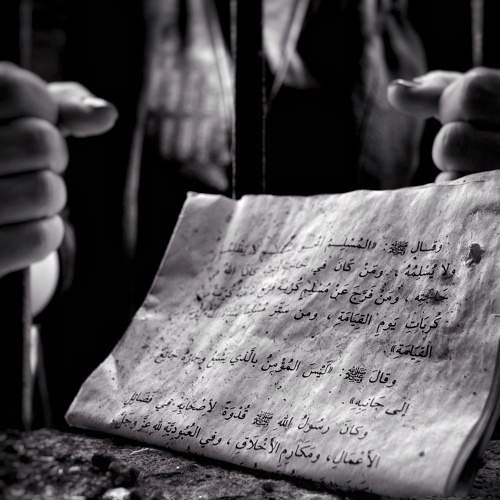 وقال ﷺ: «المُسْلِمُ أخو المُسْلِمِ لا يَظْلِمُهُ
ولا يُسْلِمُهُ ، ومَنْ كَانَ في حَاجَةِ أخيهِ كَانَ اللهُ في
حَاجَتِهِ ، ومَنْ فَرَّجَ عَنْ مُسْلِمٍ كُرْبَةً فَرَّجَ
كُرُبَاتِ يَومِ القِيَامَةِ ، ومن سَتَرَ مُسْلِمًا
القِيَامَةِ».
وقالَ ﷺ: «لَيْسَ المُؤْمِنُ بِالَّذي يَشْبَعُ وجَارُهُ جَائِعٌ
إلى جَانِبِهِ».
وكانَ رسُولُ الله ﷺ قُدْوَةً لأصْحَابِهِ في فَضَائِلِ
الأعْمَالِ، ومَكَارِمِ الأخْلَاقِ ، وفي العُبُودِيَّةِ لله عَزَّ وجَلَّ